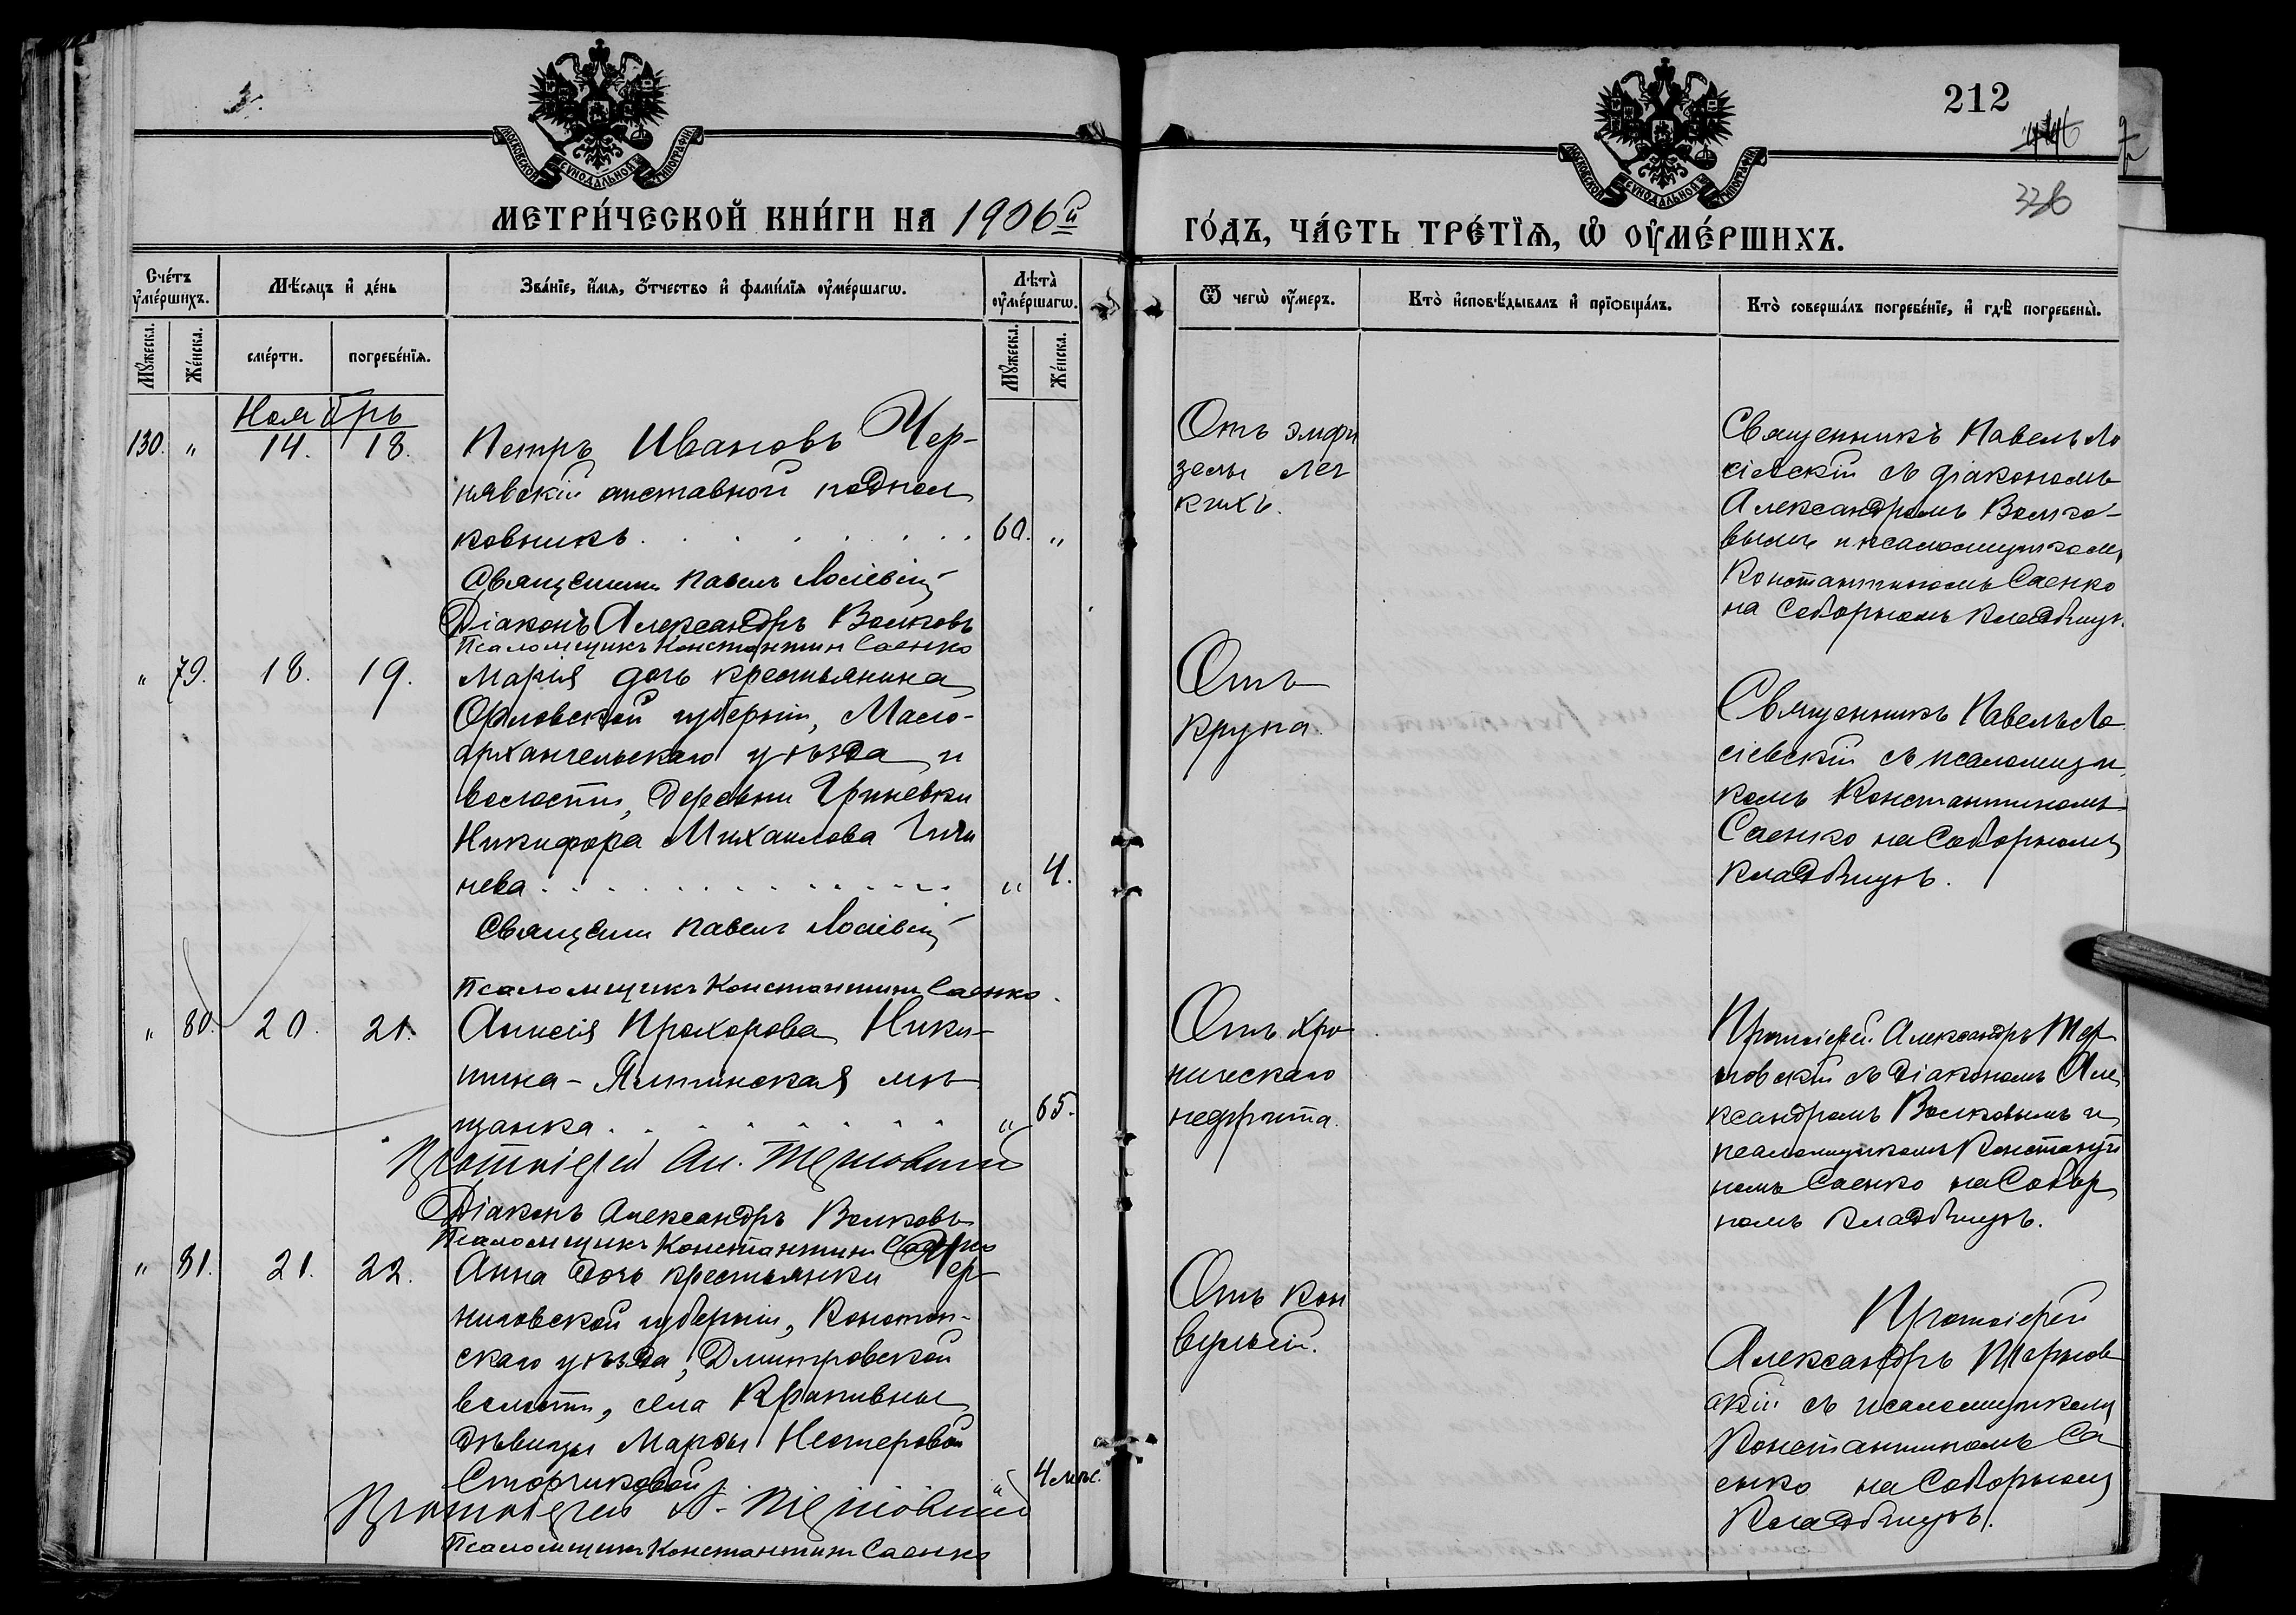 212
336
МОСКОВСКОЙ СѴНОДАЛЬНОЙ ТИПОГРАФІИ
МОСКОВСКОЙ СѴНОДАЛЬНОЙ ТИПОГРАФІИ
МЕТРИ́ЧЕСКОЙ КНИ́ГИ НА 1906й
ГО́ДЪ, ЧА́СТЬ ТРЕ́ТЇѦ, Ѡ ОУ҆МЕ́РШИХЪ.
Сче́тъ оу҆ме́ршихъ.
Мѣ́сяцъ и҆ де́нь
Зва́нїе, и҆́мя, ѻ҆́тчество и҆ фами́лїя оу҆ме́ршагѡ.
Лѣта̀ оу҆ме́ршагѡ.
Ѿ чегѡ̀ оу҆́меръ.
Кто̀ и҆сповѣ́дывалъ и҆ прїѡбща́лъ.
Кто̀ соверша́лъ погребе́нїе, и҆ гдѣ̀ погребены̀.
Мꙋ́жеска.
Же́нска.
сме́рти.
погребе́нїѧ.
Мꙋ́жеска.
Же́нска.
Ноябрь
130. " 14. 18.
Петръ Ивановъ Чер-
нявскій отставной подпол
ковникъ . . . . . . . 60. "
Священникъ Павелъ Лосіевскій
Діаконъ Александръ Волковъ
Псаломщикъ Константинъ Саенко
Отъ эмфи
земы лег
кихъ.
Священникъ Павелъ Ло
сіевскій съ діакономъ
Александромъ Волко-
вымъ и псаломщикомъ
Константиномъ Саенко
на Соборномъ кладбищѣ
" 79. 18. 19.
Марія дочь крестьянина
Орловской губерніи, Мало-
архангельскаго уѣзда и
волости, деревни Гриневки
Никифора Михаилова
нева . . . . . . . " 4.
Священникъ Павелъ Лосіевскій
Псаломщикъ Константинъ Саенко.
Отъ
крупа.
Священникъ Павелъ Ло
сіевскій съ псаломщи
комъ Константиномъ
Саенко на Соборномъ
кладбищѣ.
" 80. 20. 21.
Анисія Прохорова Ники-
тина-Ялтинская мѣ
щанка . . . . . . . " 65.
Протоіерей Ал. Терновскій
Діаконъ Александръ Волковъ
Псаломщикъ Константинъ Саенко
Отъ хро
ническаго
нефрита.
Протоіерей Александръ Тер
новскій съ діакономъ Але
ксандромъ Волковымъ и
псаломщикомъ Константи
номъ Саенко на Собор
номъ кладбищѣ.
" 81. 21. 22.
Анна дочь крестьянки Чер
ниговской губерніи, Конотоп-
скаго уѣзда, Дмитровской
волости, села Крапивны
дѣвицы Марѳы Нестеровой
Сторчиковой . . " 4 мѣс.
Протоіерей А. Терновскій
Псаломщикъ Константинъ Саенко
Отъ кон
вульсій.
Протоіерей
Александръ Тернов
скій съ псаломщикомъ
Константиномъ Са
енко на Соборномъ
Кладбищѣ.